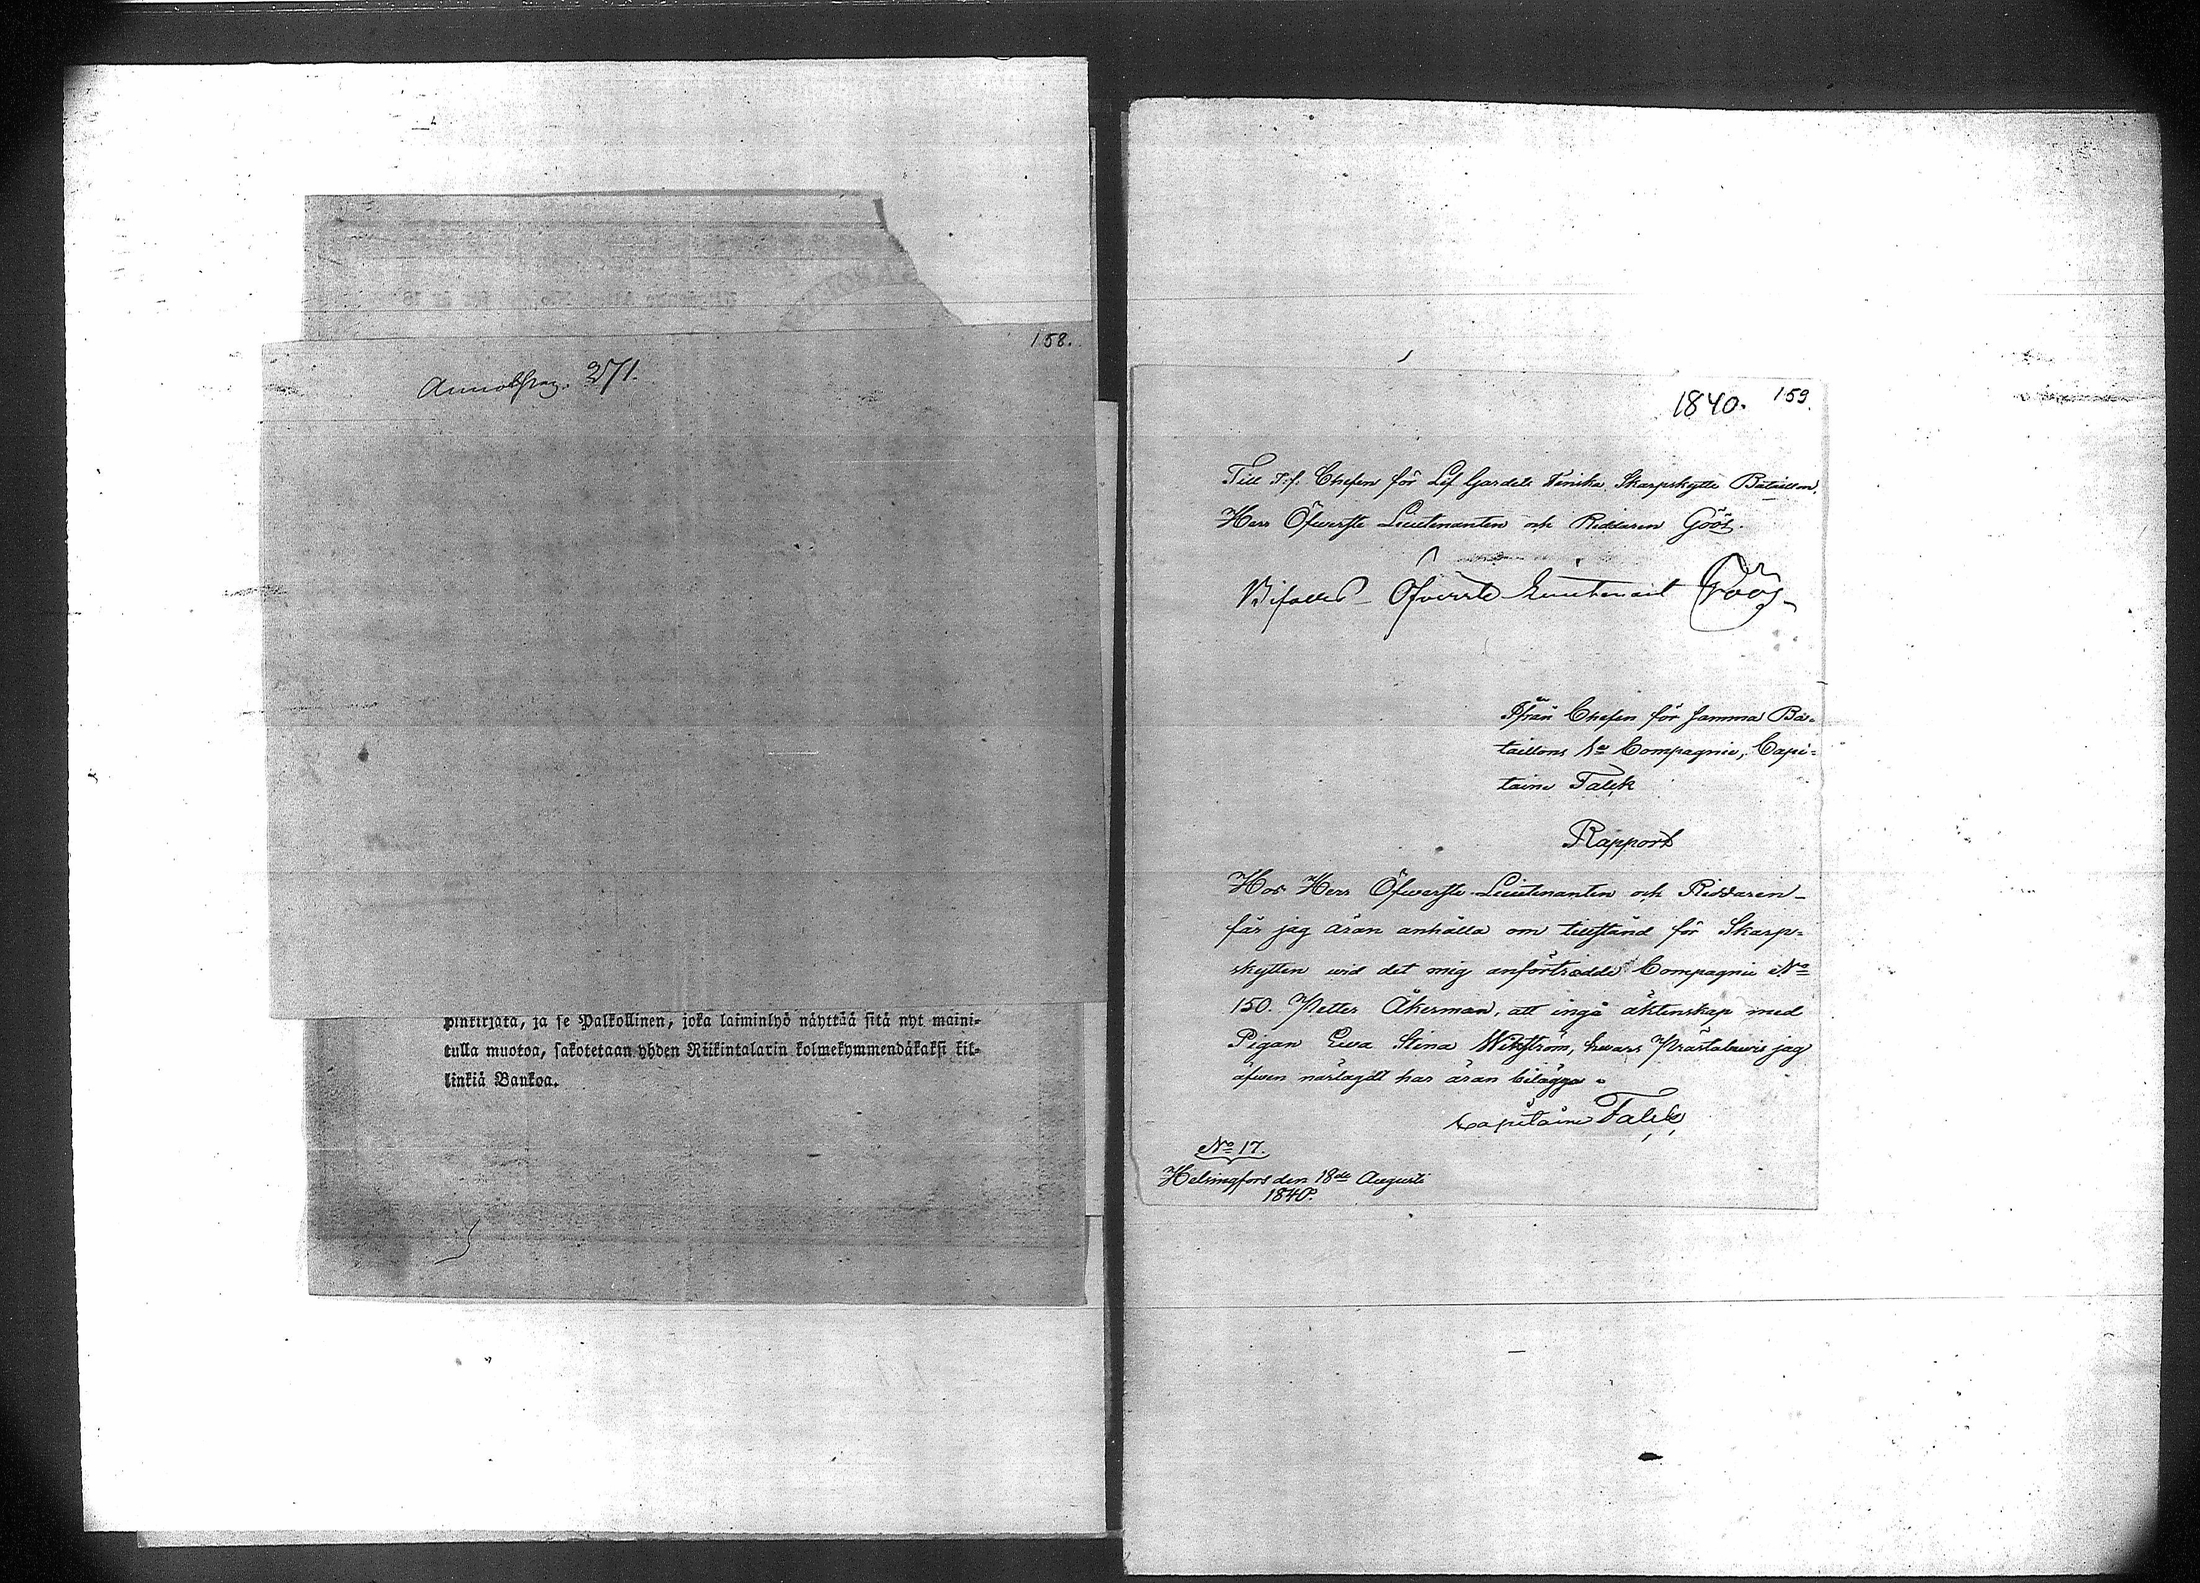 158.
271.
pinkirjata, ja se Palkollinen, joka laiminlyö näyttää sitä nyt maini-
tulla muotoa, sakotetaan yhden Riikintalarin kolmekymmendäkaksi kil-
linkiä Bankoa.
1840. 159.
Till T.f. Chefen för Lif Gardets Finska Skarpskytte Bataillon,
Herr Öfwerste Lieutenanten och Riddaren Göös.
Bifalles Öfverste Lieutenant Göös
Ifrån Chefen för samma Ba-
taillons 1a Compagnie, Capi-
taine Falck
Rapport
Hos Herr Öfwerste-Lieutenanten och Riddaren
får jag äran anhålla om tillstånd för Skarp-
skytten wid det mig anförtrodde Compagnie No
150. Petter Åkerman, att ingå äktenskap med
Pigan Ewa Stina Wikström, hwars Prästabewis jag
äfwen närlagdt har äran bilägga.
Capitaine Falck
No 17.
Helsingfors den 18de Augusti
1840.